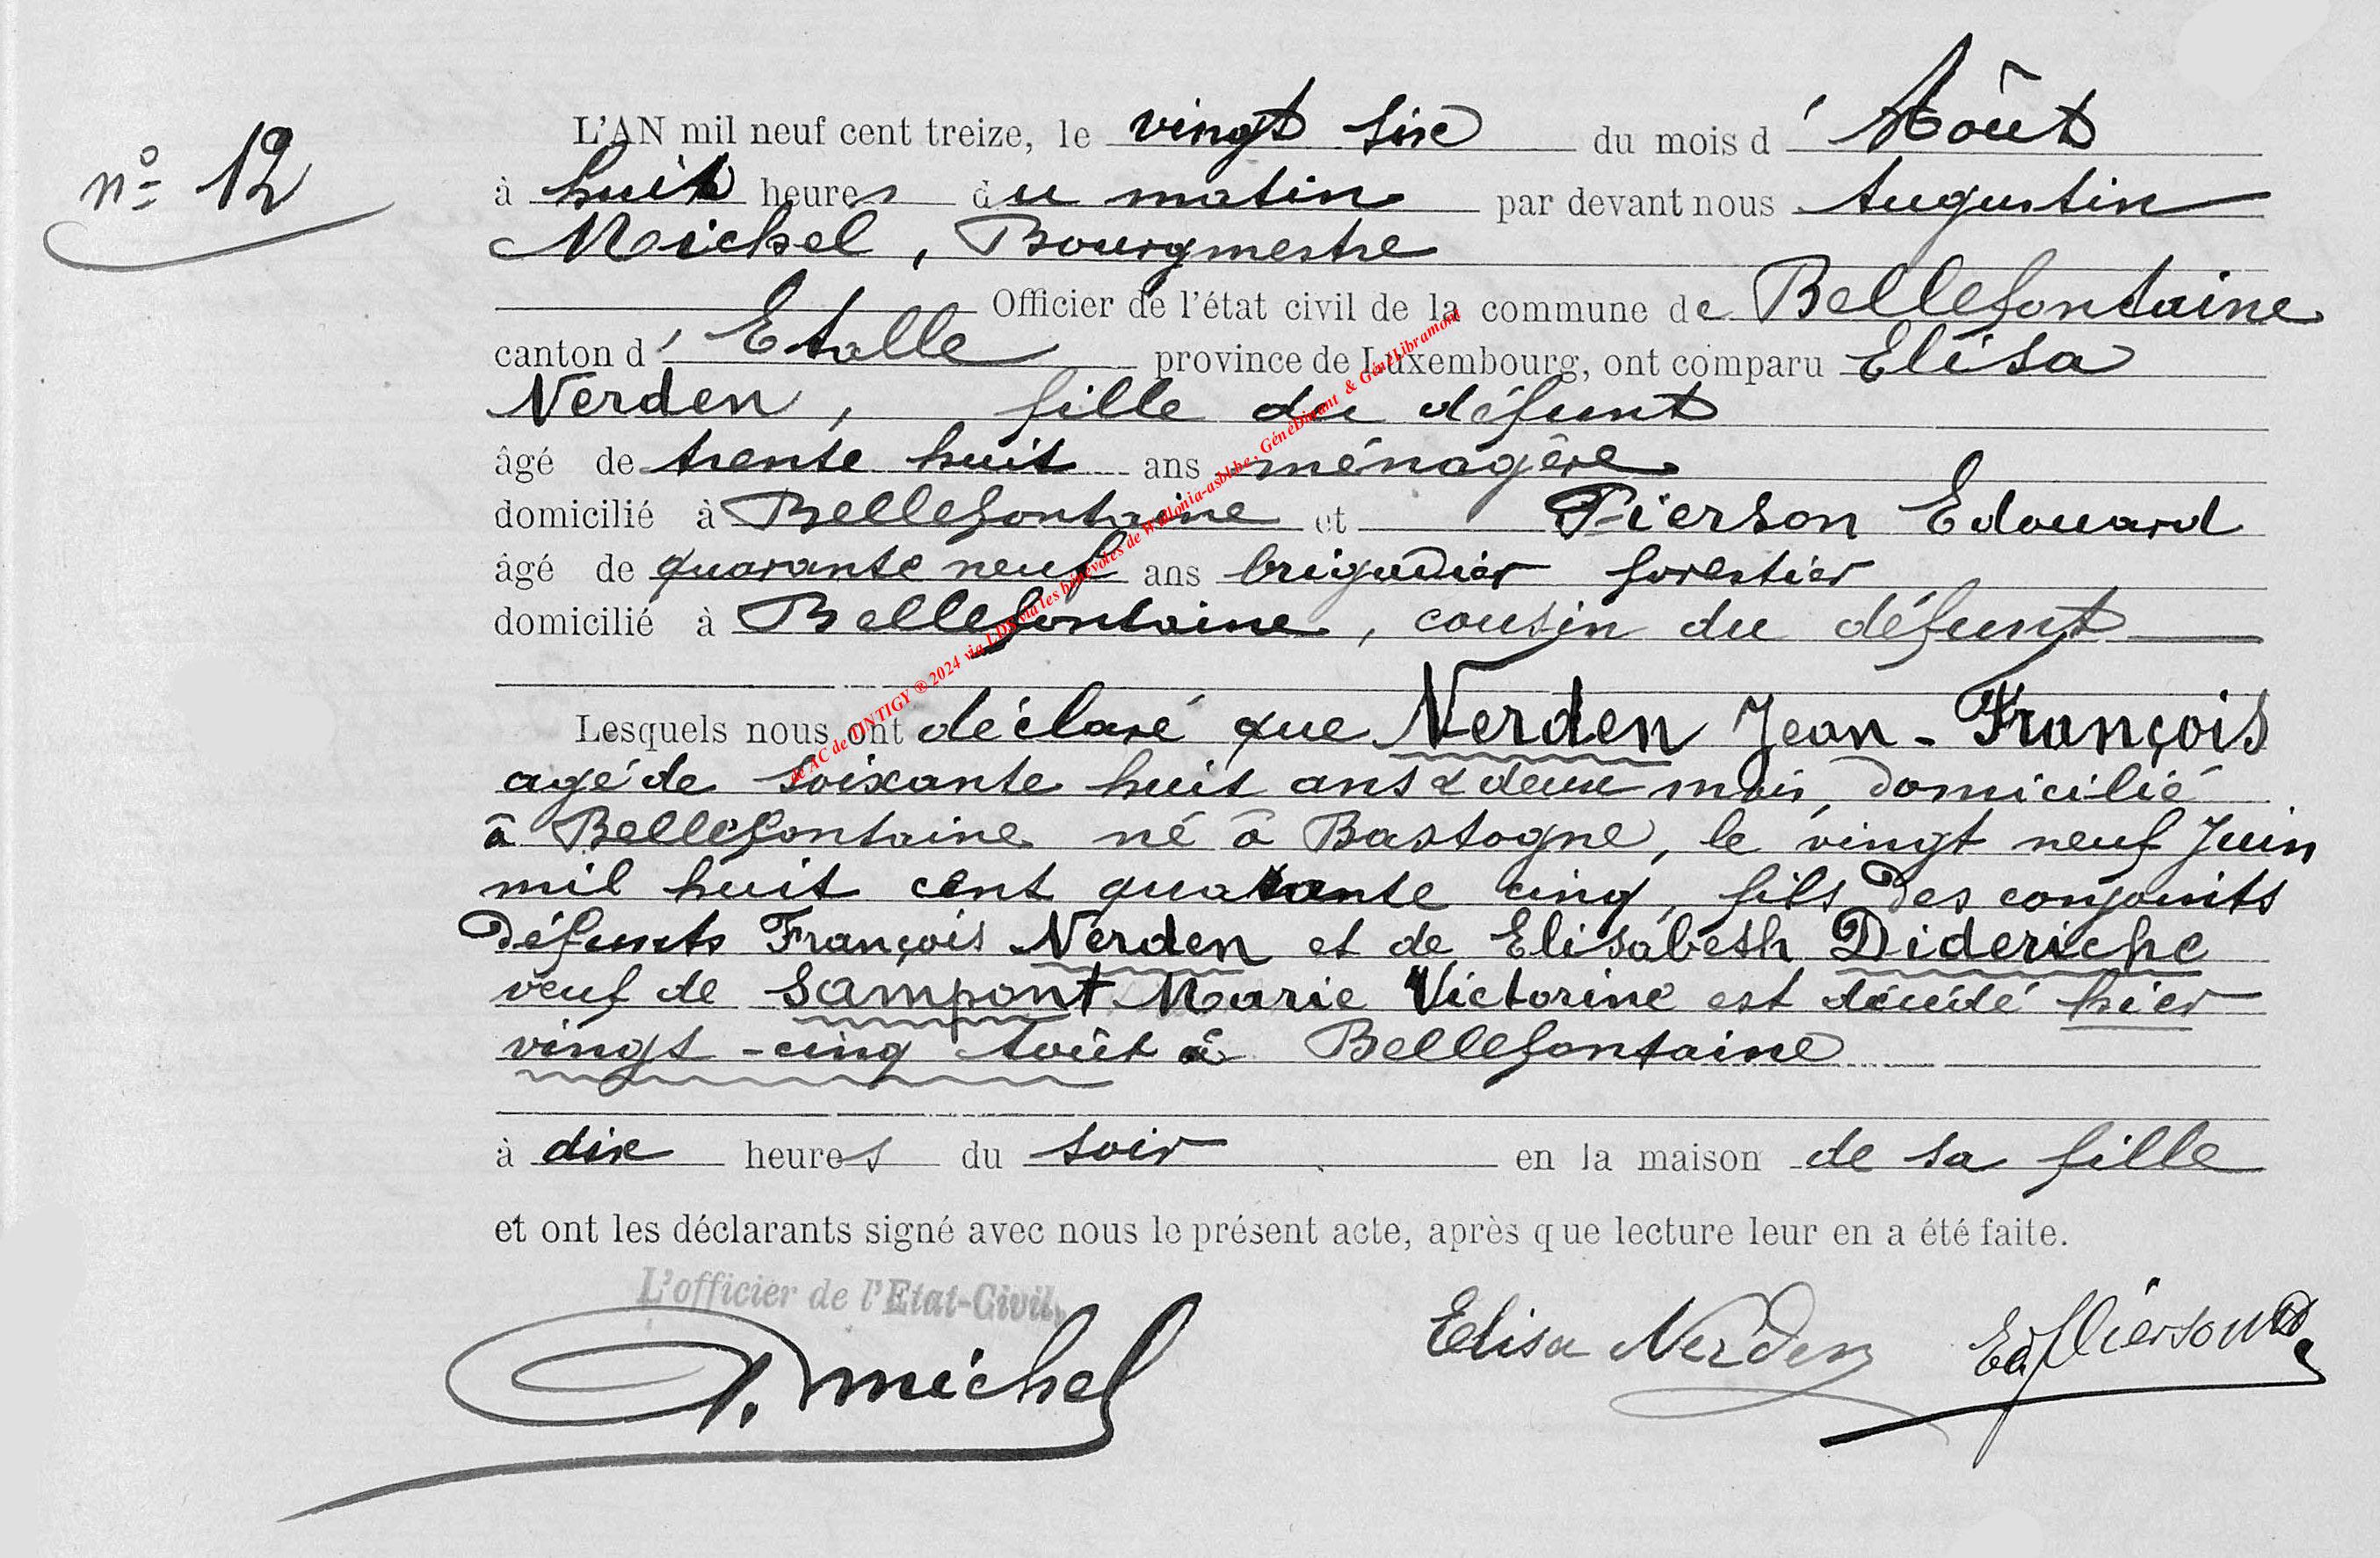 n° 12
L'AN mil neuf cent treize, le vingt six du mois d'Août
à huit heures du matin par devant nous Augustin
Michel, Bourgmestre
Officier de l'état civil de la commune de Bellefontaine
canton d'Etalle province de Luxembourg, ont comparu Elisa
Nerden, fille du défunt
âgé de trente huit ans ménagère
domicilié à Bellefontaine et Pierson Edouard
âgé de quarante neuf ans brigadier forestier
domicilié à Bellefontaine, cousin du défunt
Lesquels nous ont déclaré que Nerden Jean-François
agé de soixante huit ans & deux mois, domicilié
à Bellefontaine né à Bastogne, le vingt neuf Juin
mil huit cent quarante cinq, fils des conjoints
défunts François Nerden et de Elisabeth Dideriche
veuf de Sampont Marie Victorine est décédé hier
vingt-cinq Août à Bellefontaine
à dix heures du soir en la maison de sa fille
et ont les déclarants signé avec nous le présent acte, après que lecture leur en a été faite.
L'officier de l'Etat-Civil,
A. Michel
Elisa Nerden
Ed Pierson
de AC de TINTIGY ® 2024 via LDS via les bénévoles de Wallonia-asbl.be, GénéDinant & GénéLibramont